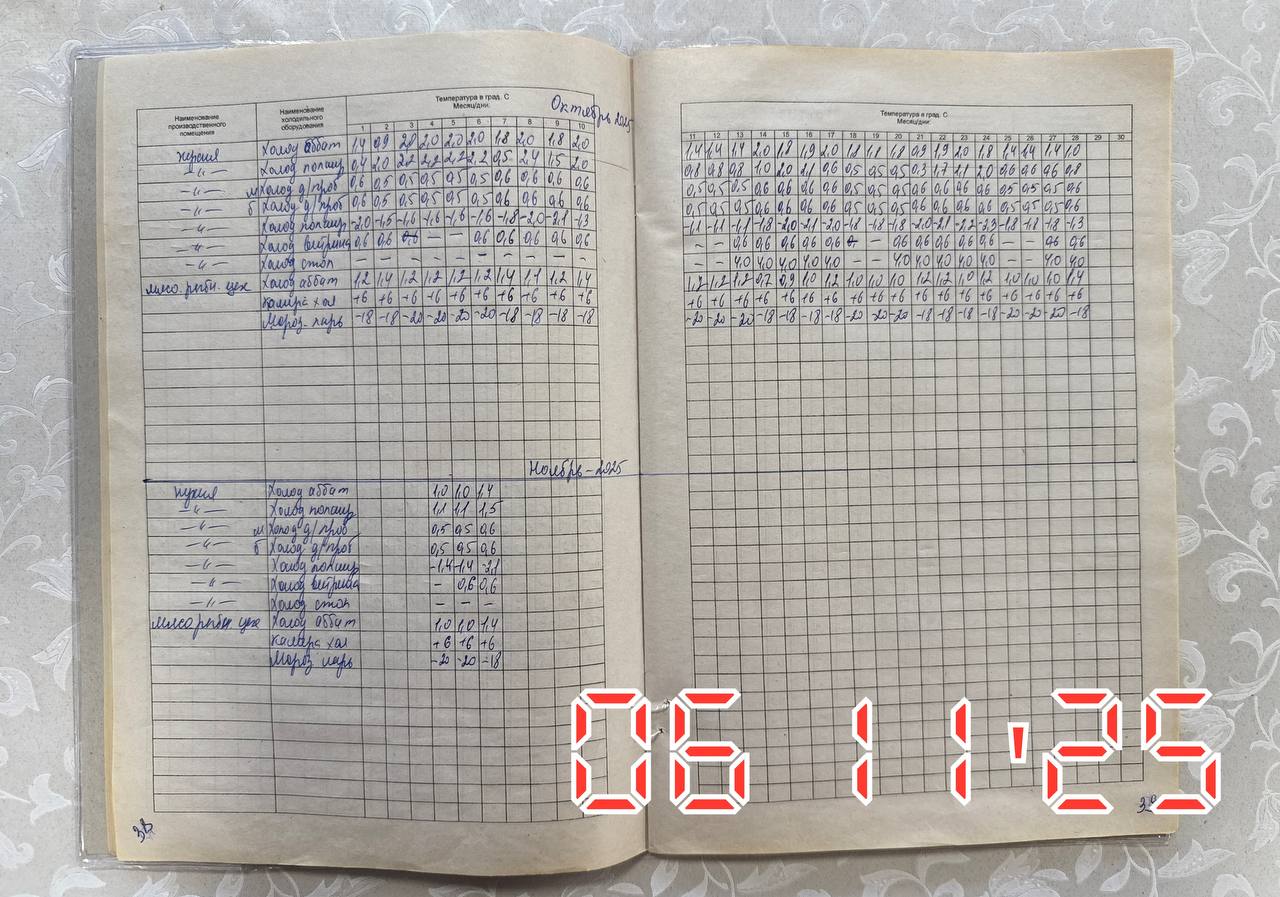 Температура в град. С
Месяц/дни.
Октябрь 2025
Наименование производственного помещения
Наименование холодильного оборудования
1 2 3 4 5 6 7 8 9 10
кухня Холод аббат 1,4 0,9 2,0 2,0 2,0 2,0 1,8 2,0 1,8 2,0
—"— Холод
—"— м Холод д/проб 0,6 0,5 0,5 0,5 0,5 0,5 0,6 0,6 0,6 0,6
—"— б Холод д/проб 0,6 0,5 0,5 0,5 0,5 0,5 0,6 0,6 0,6 0,6
—"— Холод
—"— Холод витрина 0,6 0,6 0,6 — — 0,6 0,6 0,6 0,6 0,6
—"— Холод стол – – – – – – – – – –
мясо.рыбн. цех Холод аббат 1,2 1,4 1,2 1,2 1,2 1,2 1,4 1,1 1,2 1,4
Камера хол +6 +6 +6 +6 +6 +6 +6 +6 +6 +6
Мороз. ларь -18 -18 -20 -20 -20 -20 -18 -18 -18 -18
Ноябрь-2025
кухня Холод аббат 1,0 1,0 1,4
—"— Холод 1,1 1,1 1,5
—"— м Холод д/проб 0,5 0,5 0,6
—"— б Холод д/проб 0,5 0,5 0,6
—"— Холод -1,4 -1,4 -2,1
—"— Холод витрина – 0,6 0,6
—"— Холод стол – – –
мясо рыбн цех Холод аббат 1,0 1,0 1,4
Камера хол +6 +6 +6
Мороз ларь -20 -20 -18
38
Температура в град. С
Месяц/дни.
11 12 13 14 15 16 17 18 19 20 21 22 23 24 25 26 27 28 29 30
1,4 1,4 1,4 2,0 1,8 1,9 2,0 1,8 1,8 1,8 0,9 1,9 2,0 1,8 1,4 1,4 1,4 1,0
0,8 0,8 0,8 1,0 2,0 2,1 0,6 0,5 0,5 0,5 0,3 1,7 2,1 2,0 0,6 0,6 0,6 0,8
0,5 0,5 0,5 0,6 0,6 0,6 0,6 0,5 0,5 0,5 0,6 0,6 0,6 0,6 0,5 0,5 0,5 0,6
-1,1 -1,1 -1,1 -1,8 -2,0 -2,1 -2,0 -1,8 -1,8 -1,8 -2,0 -2,1 -2,2 -2,3 -1,8 -1,8 -1,8 -1,3
– – 0,6 0,6 0,6 0,6 0,6 – – 0,6 0,6 0,6 0,6 0,6 – – 0,6 0,6
– – 4,0 4,0 4,0 4,0 4,0 – – 4,0 4,0 4,0 4,0 4,0 – – 4,0 4,0
1,2 1,2 1,2 0,7 0,9 1,0 1,2 1,0 1,0 1,0 1,2 1,2 1,0 1,2 1,0 1,0 1,0 1,4
+6 +6 +6 +6 +6 +6 +6 +6 +6 +6 +6 +6 +6 +6 +6 +6 +6 +6
-20 -20 -20 -18 -18 -18 -18 -20 -20 -20 -18 -18 -18 -18 -20 -20 -20 -18
06 11 '25